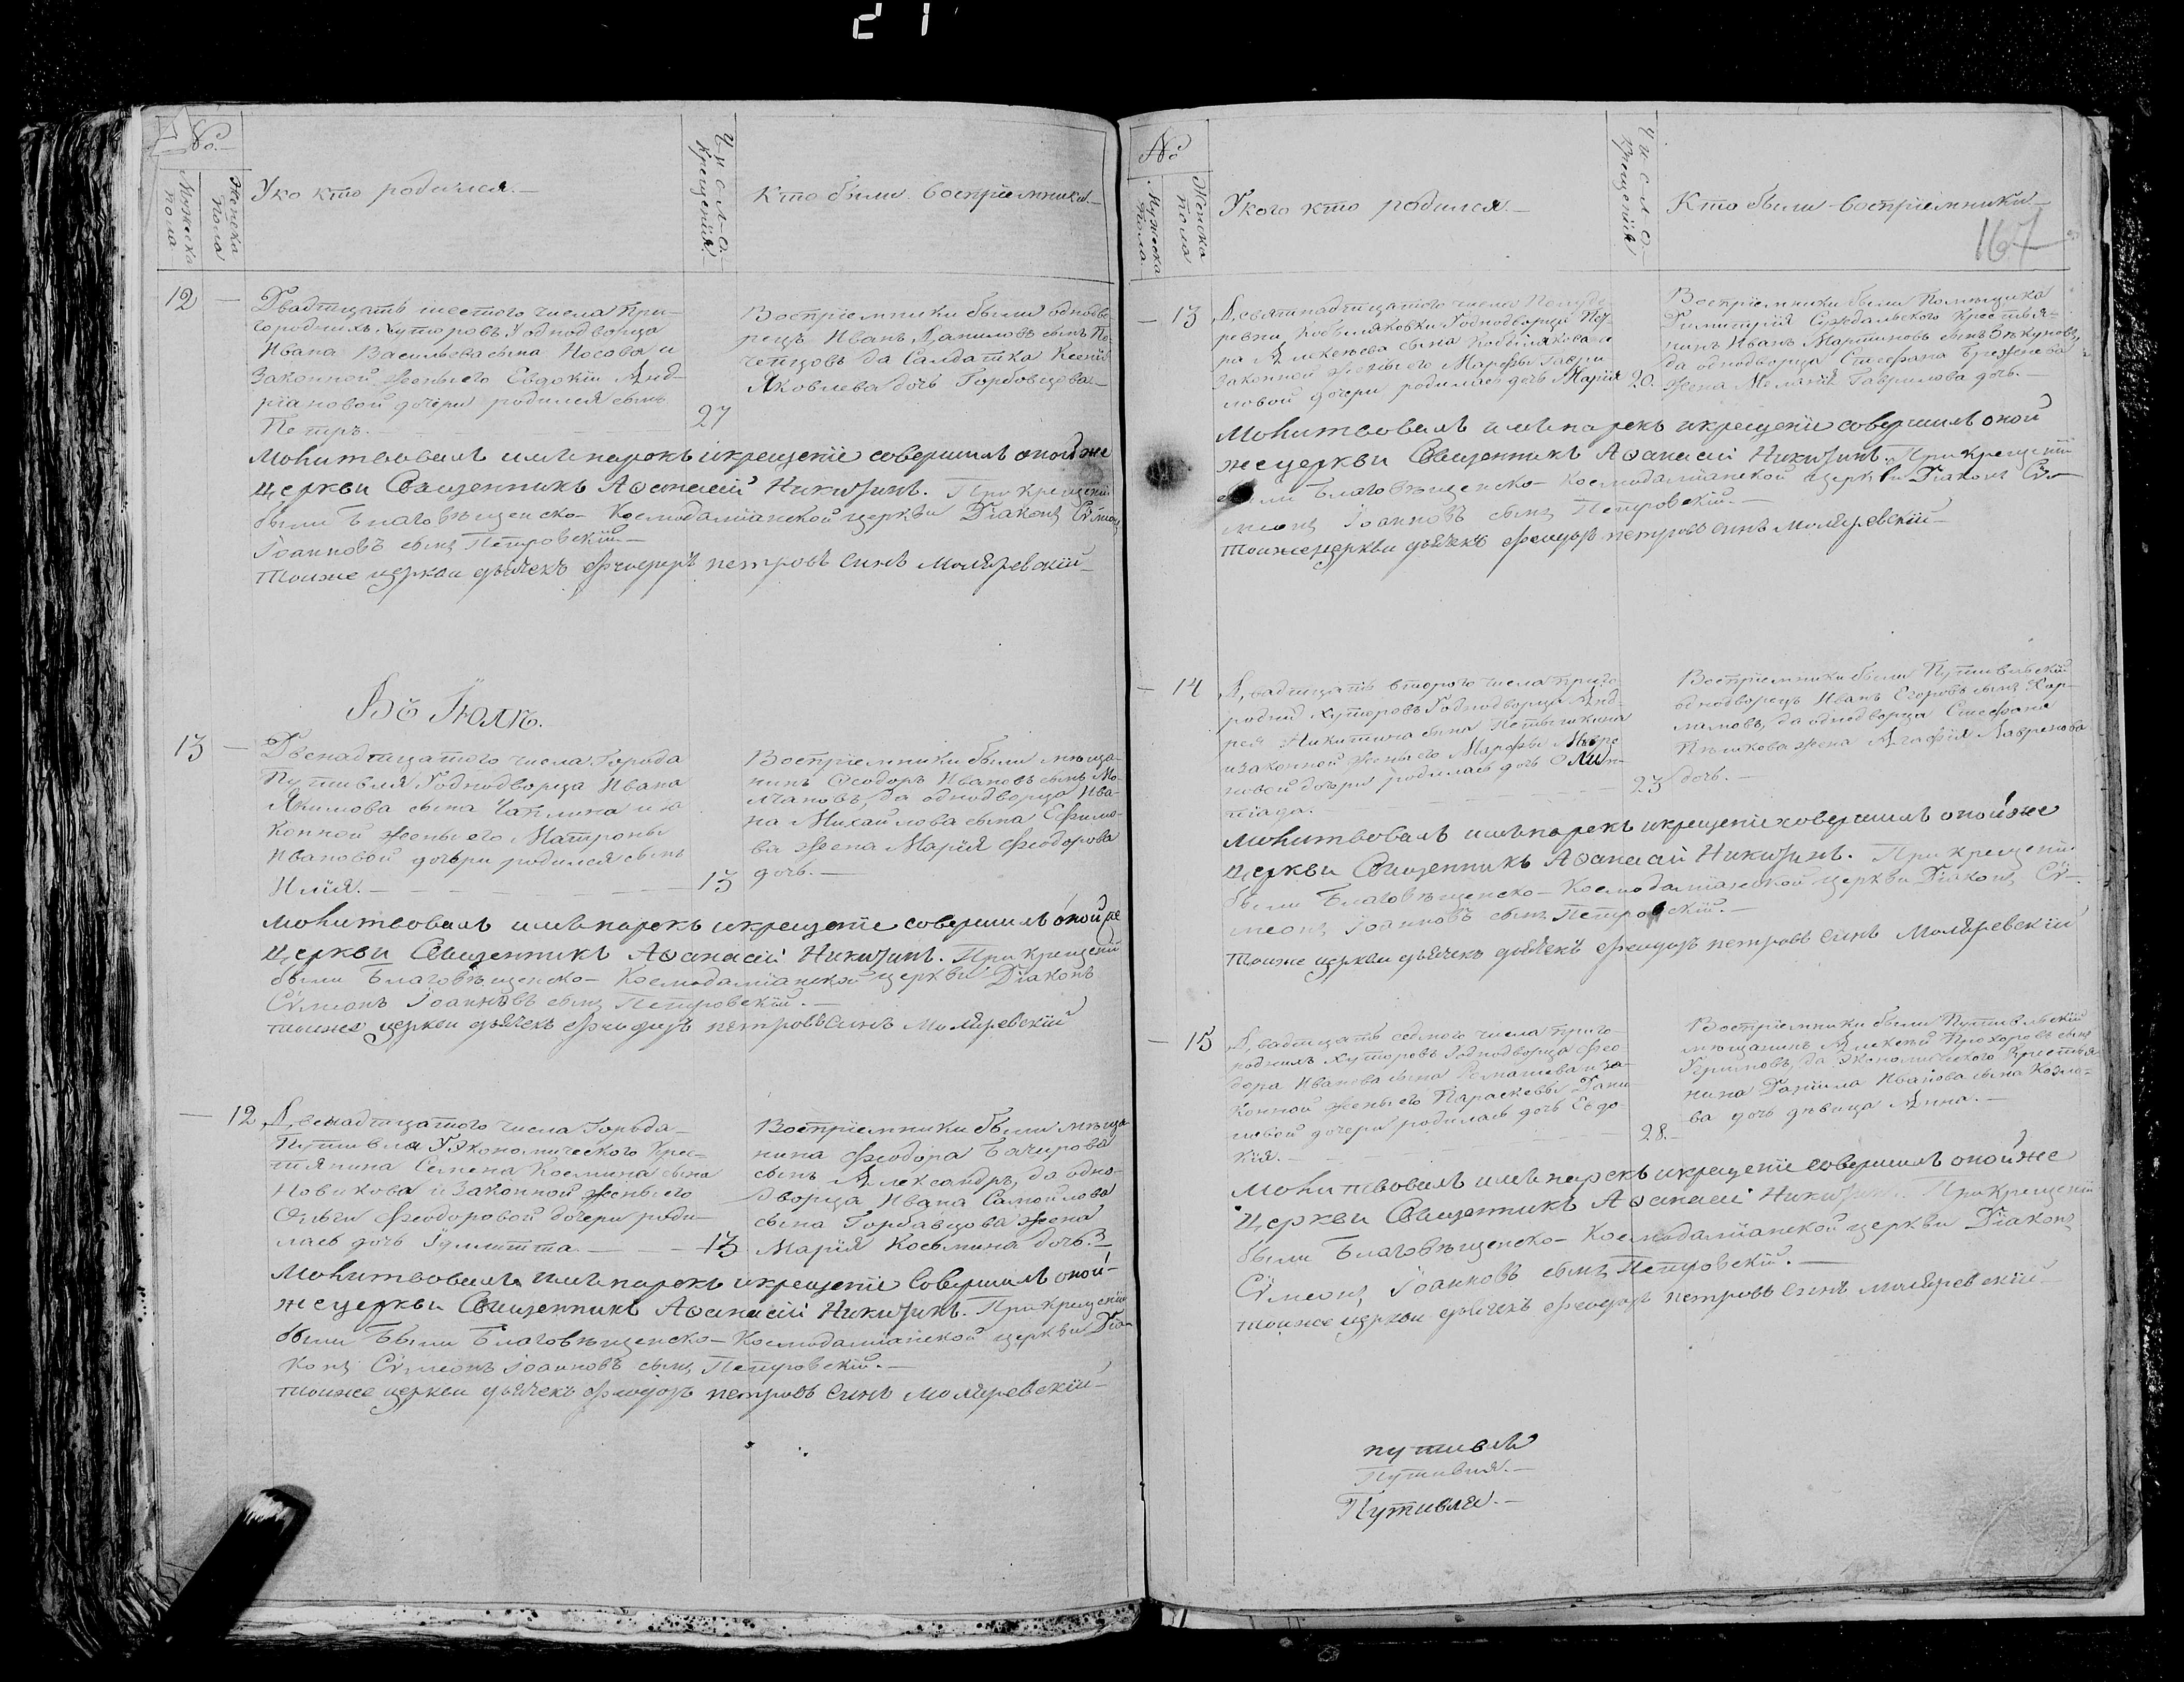 21
№
Мужеска пола
Женска пола
Уко кто родился.
Число крещения.
Кто были восприемники
12 — Двадтцать шестого числа При-
городнихъ хуторовъ Уоднодворца
Ивана Васильева сына Носова и
Законной жены его Евдокіи Анд-
ріановой дочери родился сынъ
Петръ. 27
Воспріемники были однодво-
рецъ Иванъ Даниловъ сынъ По-
чепцовъ да Салдатка Ксенія
Яковлева дочь Горбовцова
Молитвовалъ имя нарекъ икрещеніе совершилъ оной же
церкви Священникъ Аѳанасій Никитинъ. При крещеніи
были Благовѣщенско-Космодаміанской церкви Діаконъ Сѵмеонъ
Іоанновъ сынъ Петровскій.
тоиже церкви дьячекъ Феодоръ петровъ синъ Моляревскій
Въ Іюлѣ.
13 — Двенадтцатого числа Города
Путивля Уоднодворца Ивана
Якимова сына Чаплина и за
конной жены его Матроны
Ивановой дочери родился сынъ
Илія. 13
Воспріемники были мѣща-
нинъ Ѳеодоръ Ивановъ сынъ Мо-
лчановъ, да однодворца Ива-
на Михайлова сына Ефимо-
ва жена Марія Феодорова
дочь.
Молитвовалъ имя нарекъ икрещеніе совершилъ онойже
церкви Священникъ Аѳанасій Никитинъ. При крещеніи
были Благовѣщенско-Космодаміанской церкви Діаконъ
Сѵмеонъ Іоанновъ сынъ Петровскій.
тоиже церкви дьячекъ Феодоръ петровъ синъ Моляревскій
— 12 Двенадтцатого числа Города
Путивля Уэкономического Крес-
тянина Семена Космина сына
Новикова и Законной жены его
Ольги Феодоровой дочери роди-
лась дочь Іулитта. 13
Воспріемники были мѣща
нина Феодора Бачурова
сынъ Александръ, да одно-
дворца Ивана Самойлова
сына Горбавцова жена
Марія Косьмина дочь.
Молитвовалъ имя нарекъ икрещеніе совершилъ оной-
же церкви Священникъ Аѳанасій Никитинъ. При крещеніи
были Были Благовѣщенско-Космодаміанской церкви Діа-
конъ Сѵмеонъ Іоанновъ сынъ Петровскій.
тоиже церкви дьячекъ Феодоръ петровъ синъ Моляревскій
№
Мужеска пола.
Женска пола
Укого кто родился.
Число крещения
Кто были воспріемники
167
— 13 Девятнадтцатого числа
ревни Кобиляковки Уоднодворца Пет-
ра Алексѣева сына Кобилякова и
Законной жены его Марфы Гаври
ловой дочери родилась дочь Марія 20.
Воспріемники были Помѣщика
Димитрія Суждальского Крестья-
нинъ Иванъ Мартиновъ сынъ
да однодворца Стефана Брежнева
жена Меланія Гаврилова дочь.
Молитвовалъ имя нарекъ икрещеніе совершилъ оной
же церкви Священникъ Аѳанасій Никитинъ. При крещеніи
были Благовѣщенско-Космодаміанской церкви Діаконъ Сѵ-
меонъ Іоанновъ сынъ Петровскій.
тоиже церкви дьячекъ Феодоръ петровъ синъ Моляревскій
— 14 Двадтцать второго числа приго-
родних Хуторовъ Уоднодворца Анд-
рея Никитина сына
изаконной жены его Марфы Лавре
новой дочери родилась дочь Олим-
піада. 23
Воспріемники были Путивльскій
однодворецъ Иванъ Егоровъ сынъ Хар-
ламовъ, да однодворца Стефана
жена Агафія Лавренова
дочь.
Молитвовалъ имя нарекъ икрещеніе совершилъ онойже
церкви Священникъ Аѳанасій Никитинъ. При крещеніи
были Благовѣщенско-Космодаміанской церкви Діаконъ Сѵ-
меонъ Іоанновъ сынъ Петровскій.
тоиже церкви дьячекъ дьячекъ Феодоръ петровъ синъ Моляревскій
— 15 Двадтцать седмого числа приго-
роднихъ Хуторовъ Уоднодворца Фео-
дора Иванова сына и за-
конной жены его Параскевы Дани
ловой дочери родилась дочь Евдо-
кія. 28.
Воспріемники были Путивльскій
мѣщанинъ Алексѣй Прохоровъ сынъ
да Экономического Крестья-
нина Даніила Иванова сына Козло-
ва дочь дѣвица Анна.
Молитвовалъ имя нарекъ икрещеніе совершилъ онойже
церкви Священникъ Аѳанасій Никитинъ. При крещеніи
были Благовѣщенско-Космодаміанской церкви Діаконъ
Сѵмеонъ Іоанновъ сынъ Петровскій.
тоиже церкви дьячекъ Феодоръ петровъ синъ Моляревскій
путивля
Путивля.
Путивля.